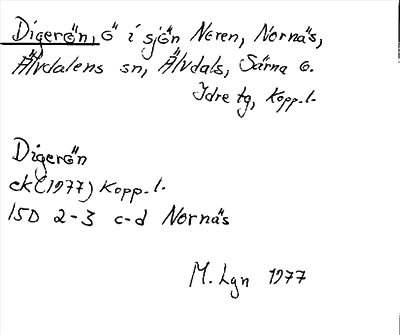 Digerön, ö i sjön Noren, Nornäs,
Älvdalens sn, Älvdals, Särna o.
Idre tg, Kopp.l.
Digerön
ek (1977) Kopp.l.
15D 2-3 c-d Nornäs
M. Lgn 1977